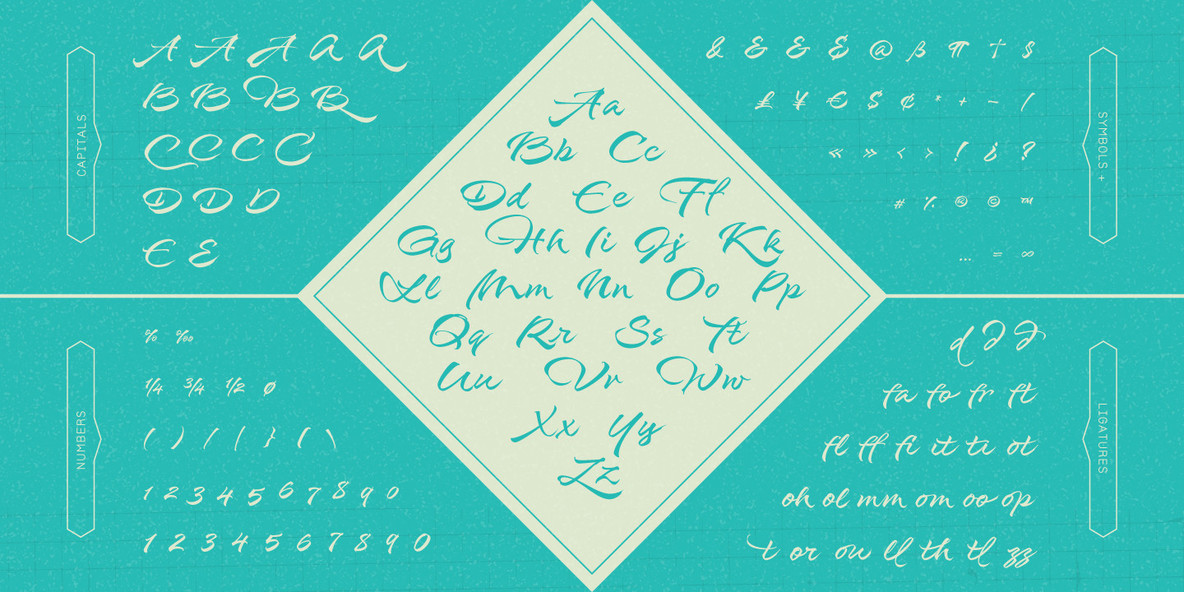 CAPITALS
A A A A A
B B B B
C C C C
D D D
E E
SYMBOLS +
& & & & @ ß ¶ † $
£ ¥ € $ ¢ * + − /
« » < > ! ¿ ?
# ٪ ® © ™
... = ∞
Aa
Bb Cc
Dd Ee Ff
Gg Hh Ii Jj Kk
Ll Mm Nn Oo Pp
Qq Rr Ss Tt
Uu Vv Ww
Xx Yy
Zz
NUMBERS
% ‰
1/4 3/4 1/2 ø
( ) / | } ( \
1 2 3 4 5 6 7 8 9 0
1 2 3 4 5 6 7 8 9 0
LIGATURES
d ∂ ∂
fa fo fr ft
fl ff fi it ti ot
oh ol mm om oo op
t or ou ll th tl zz